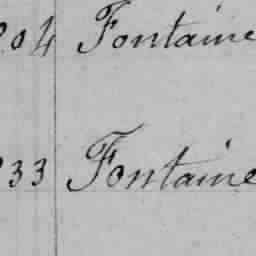 204 Fontaine
233 Fontaine